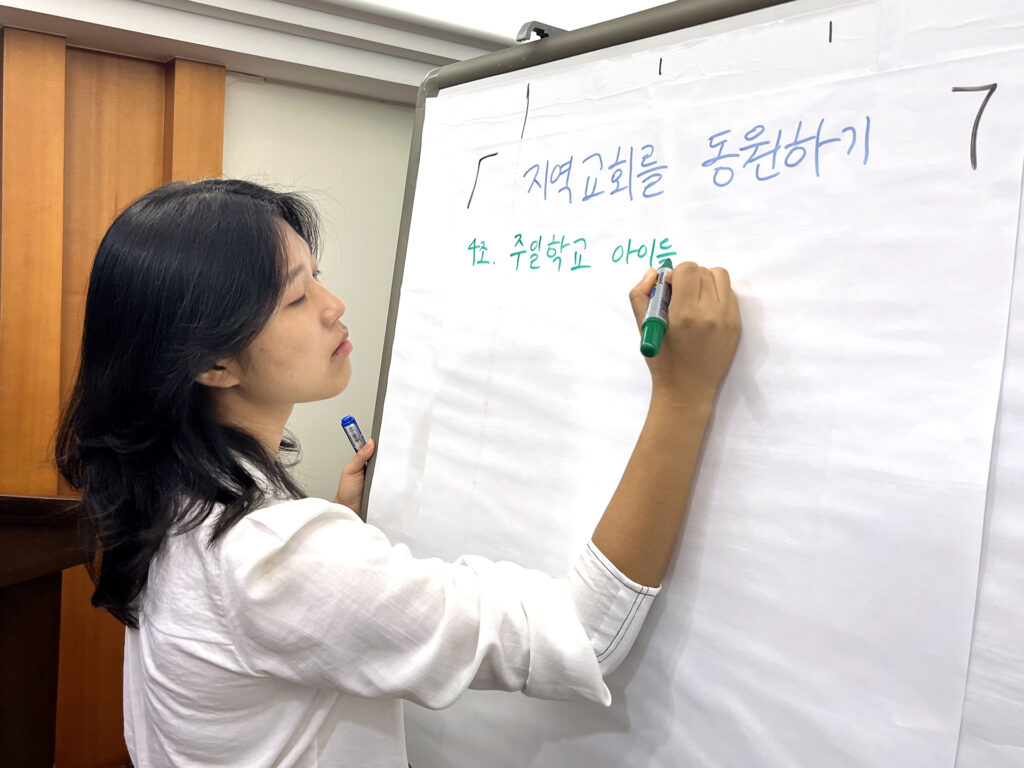 지역교회를 동원하기
4조. 주일학교 아이들